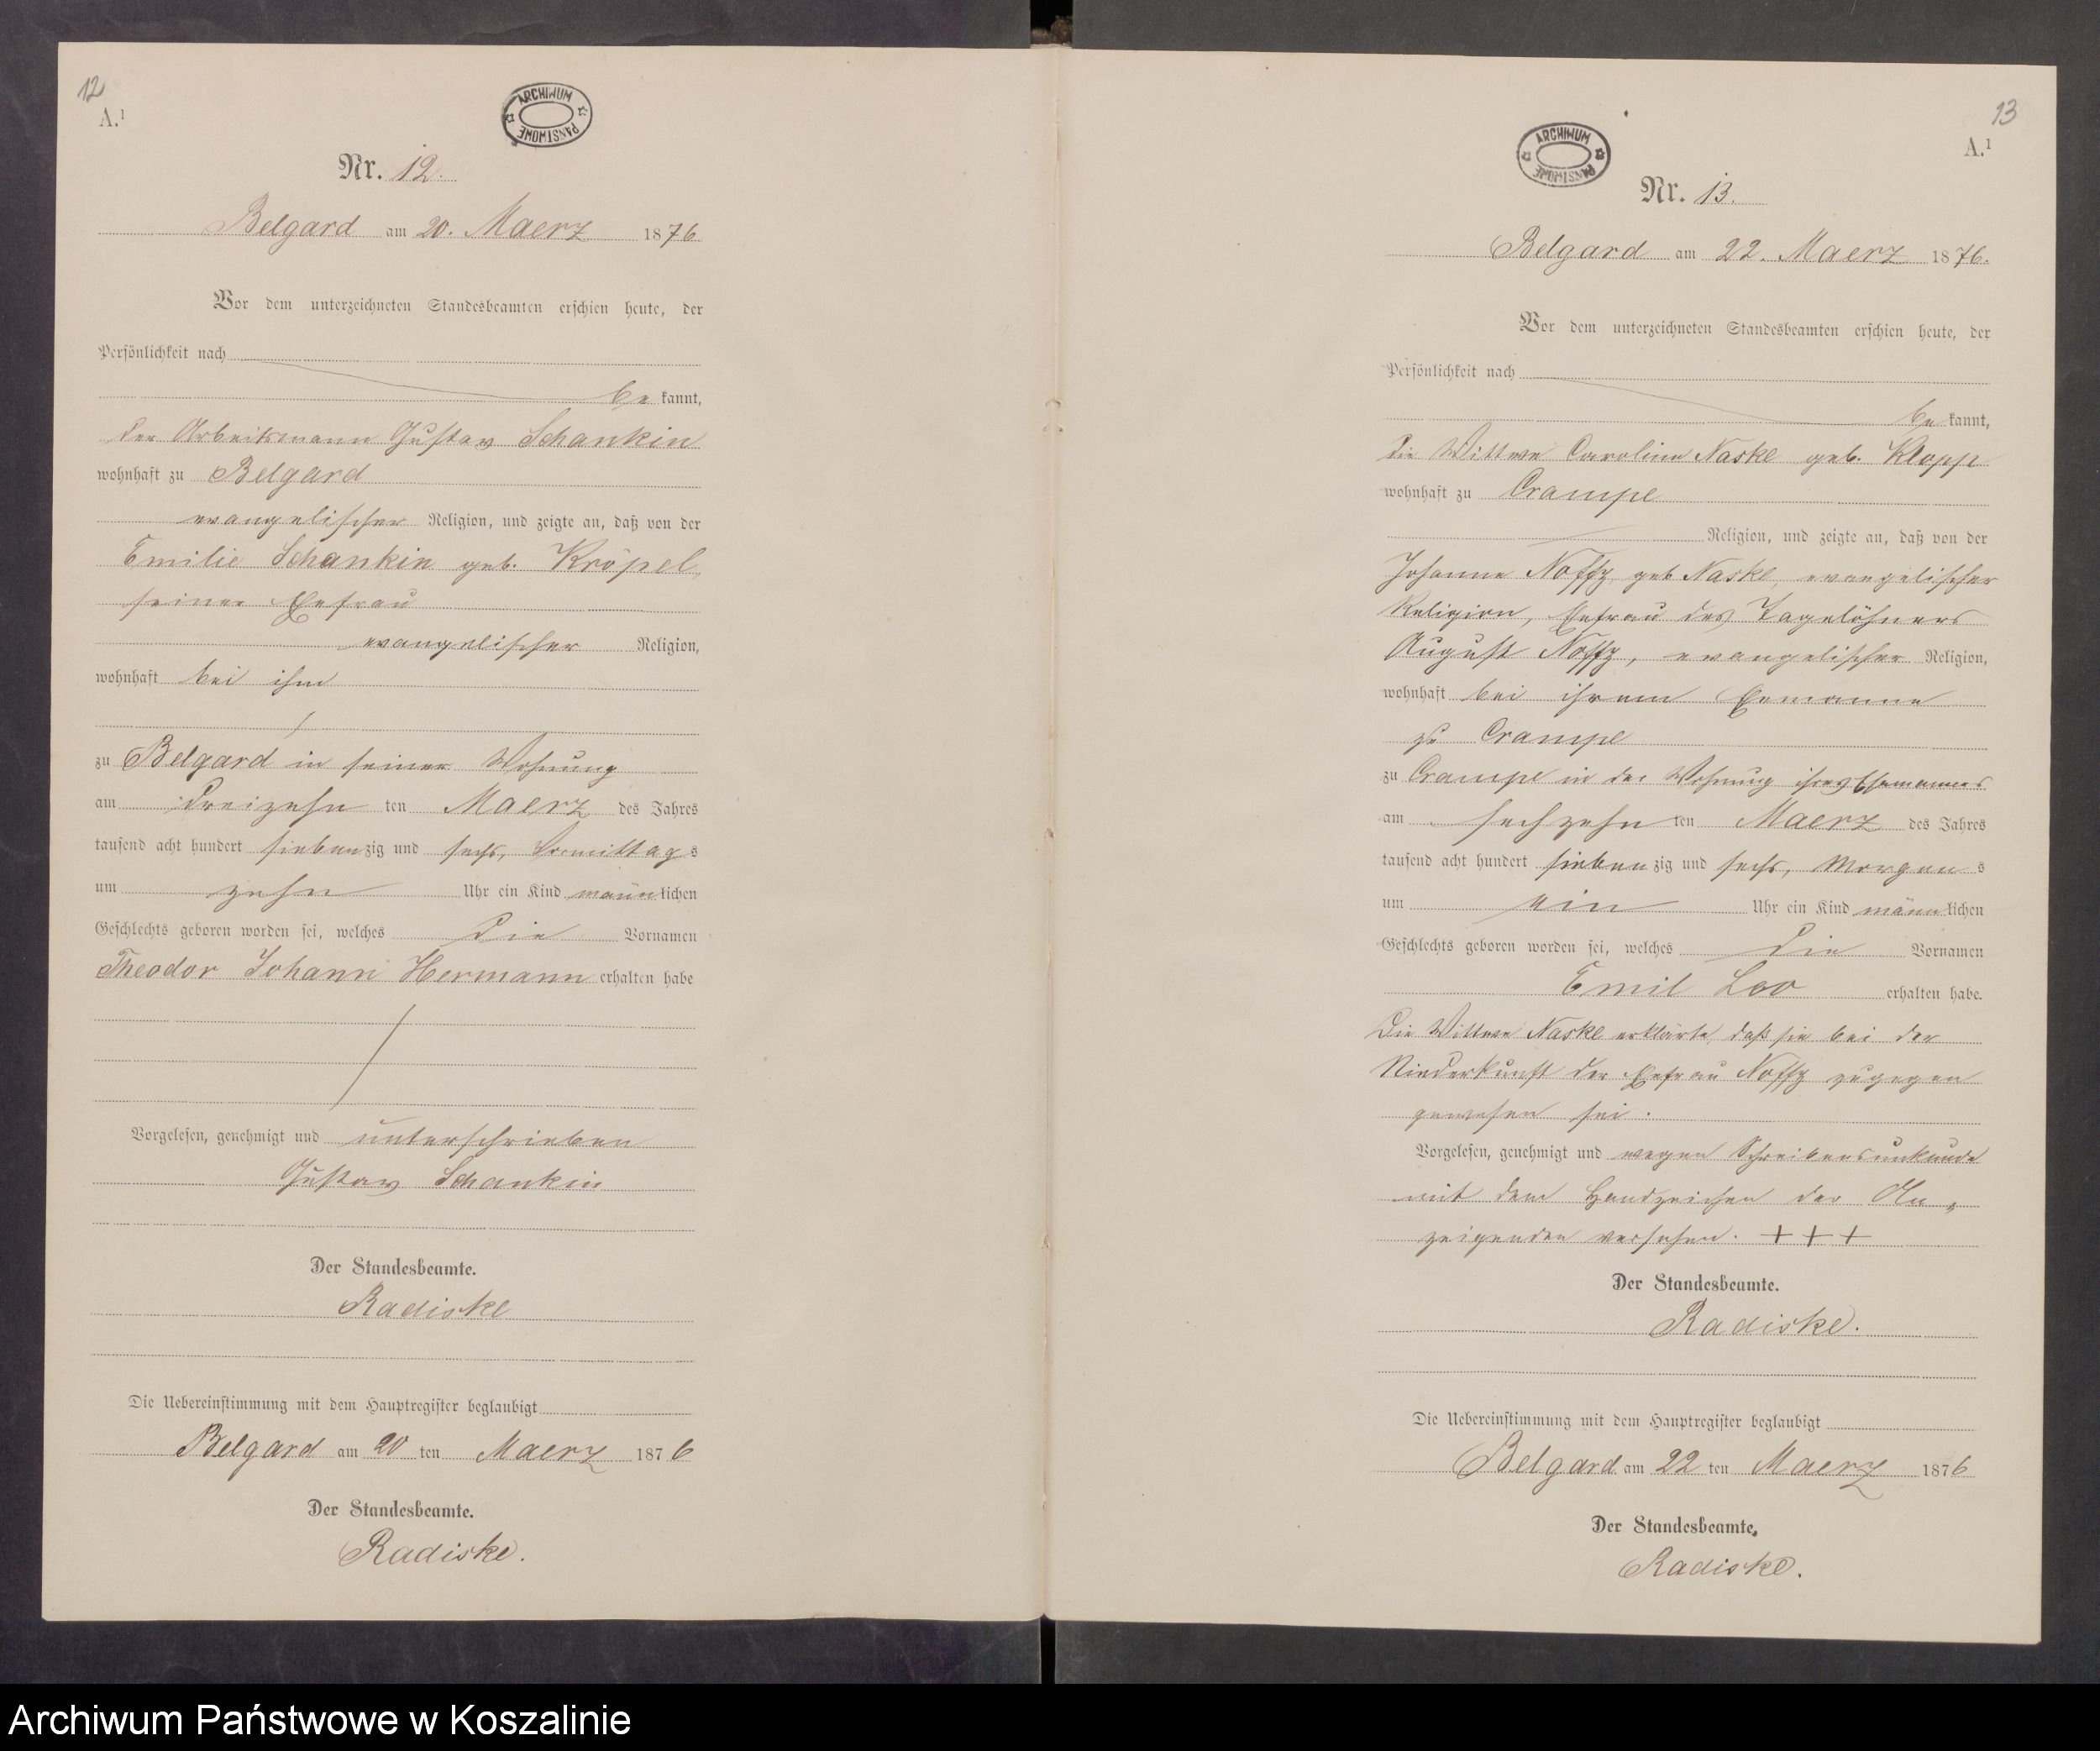 12
A.¹
ARCHIWUM PAŃSTWOWE
Nr. 12.
Belgard am 20. Maerz 1876
Vor dem unterzeichneten Standesbeamten erschien heute, der
Persönlichkeit nach
be kannt,
der Arbeitsmann Gustav Schankin
wohnhaft zu Belgard
evangelischer Religion, und zeigte an, daß von der
Emilie Schankin geb. Kröpel,
seiner Ehefrau
evangelischer Religion,
wohnhaft bei ihm
zu Belgard in seiner Wohnung
am dreizehn ten Maerz des Jahres
tausend acht hundert siebenzig und sechs, Vormittags
um zehn Uhr ein Kind männlichen
Geschlechts geboren worden sei, welches die Vornamen
Theodor Johann Hermann erhalten habe
Vorgelesen, genehmigt und unterschrieben
Gustav Schankin
Der Standesbeamte.
Radiske
Die Uebereinstimmung mit dem Hauptregister beglaubigt
Belgard am 20 ten Maerz 1876
Der Standesbeamte.
Radiske.
13
A.¹
ARCHIWUM PAŃSTWOWE
Nr. 13.
Belgard am 22. Maerz 1876.
Vor dem unterzeichneten Standesbeamten erschien heute, der
Persönlichkeit nach
be kannt,
die Wittwe Caroline Naske geb. Klopp
wohnhaft zu Crampe
Religion, und zeigte an, daß von der
Johanne Noffz geb Naske, evangelischer
Religion, Ehefrau des Tagelöhners
August Noffz, evangelischer Religion,
wohnhaft bei ihrem Ehemanne
zu Crampe
zu Crampe in der Wohnung ihres Ehemannes
am sechzehn ten Maerz des Jahres
tausend acht hundert siebenzig und sechs, Morgens
um ein Uhr ein Kind männlichen
Geschlechts geboren worden sei, welches die Vornamen
Emil Leo erhalten habe.
Die Wittwe Naske erklärte, daß sie bei der
Niederkunft der Ehefrau Noffz zugegen
gewesen sei.
Vorgelesen, genehmigt und wegen Schreibensunkunde
mit dem Handzeichen der An„
zeigenden versehen. + + +
Der Standesbeamte.
Radiske.
Die Uebereinstimmung mit dem Hauptregister beglaubigt
Belgard am 22 ten Maerz 1876
Der Standesbeamte.
Radiske.
Archiwum Państwowe w Koszalinie